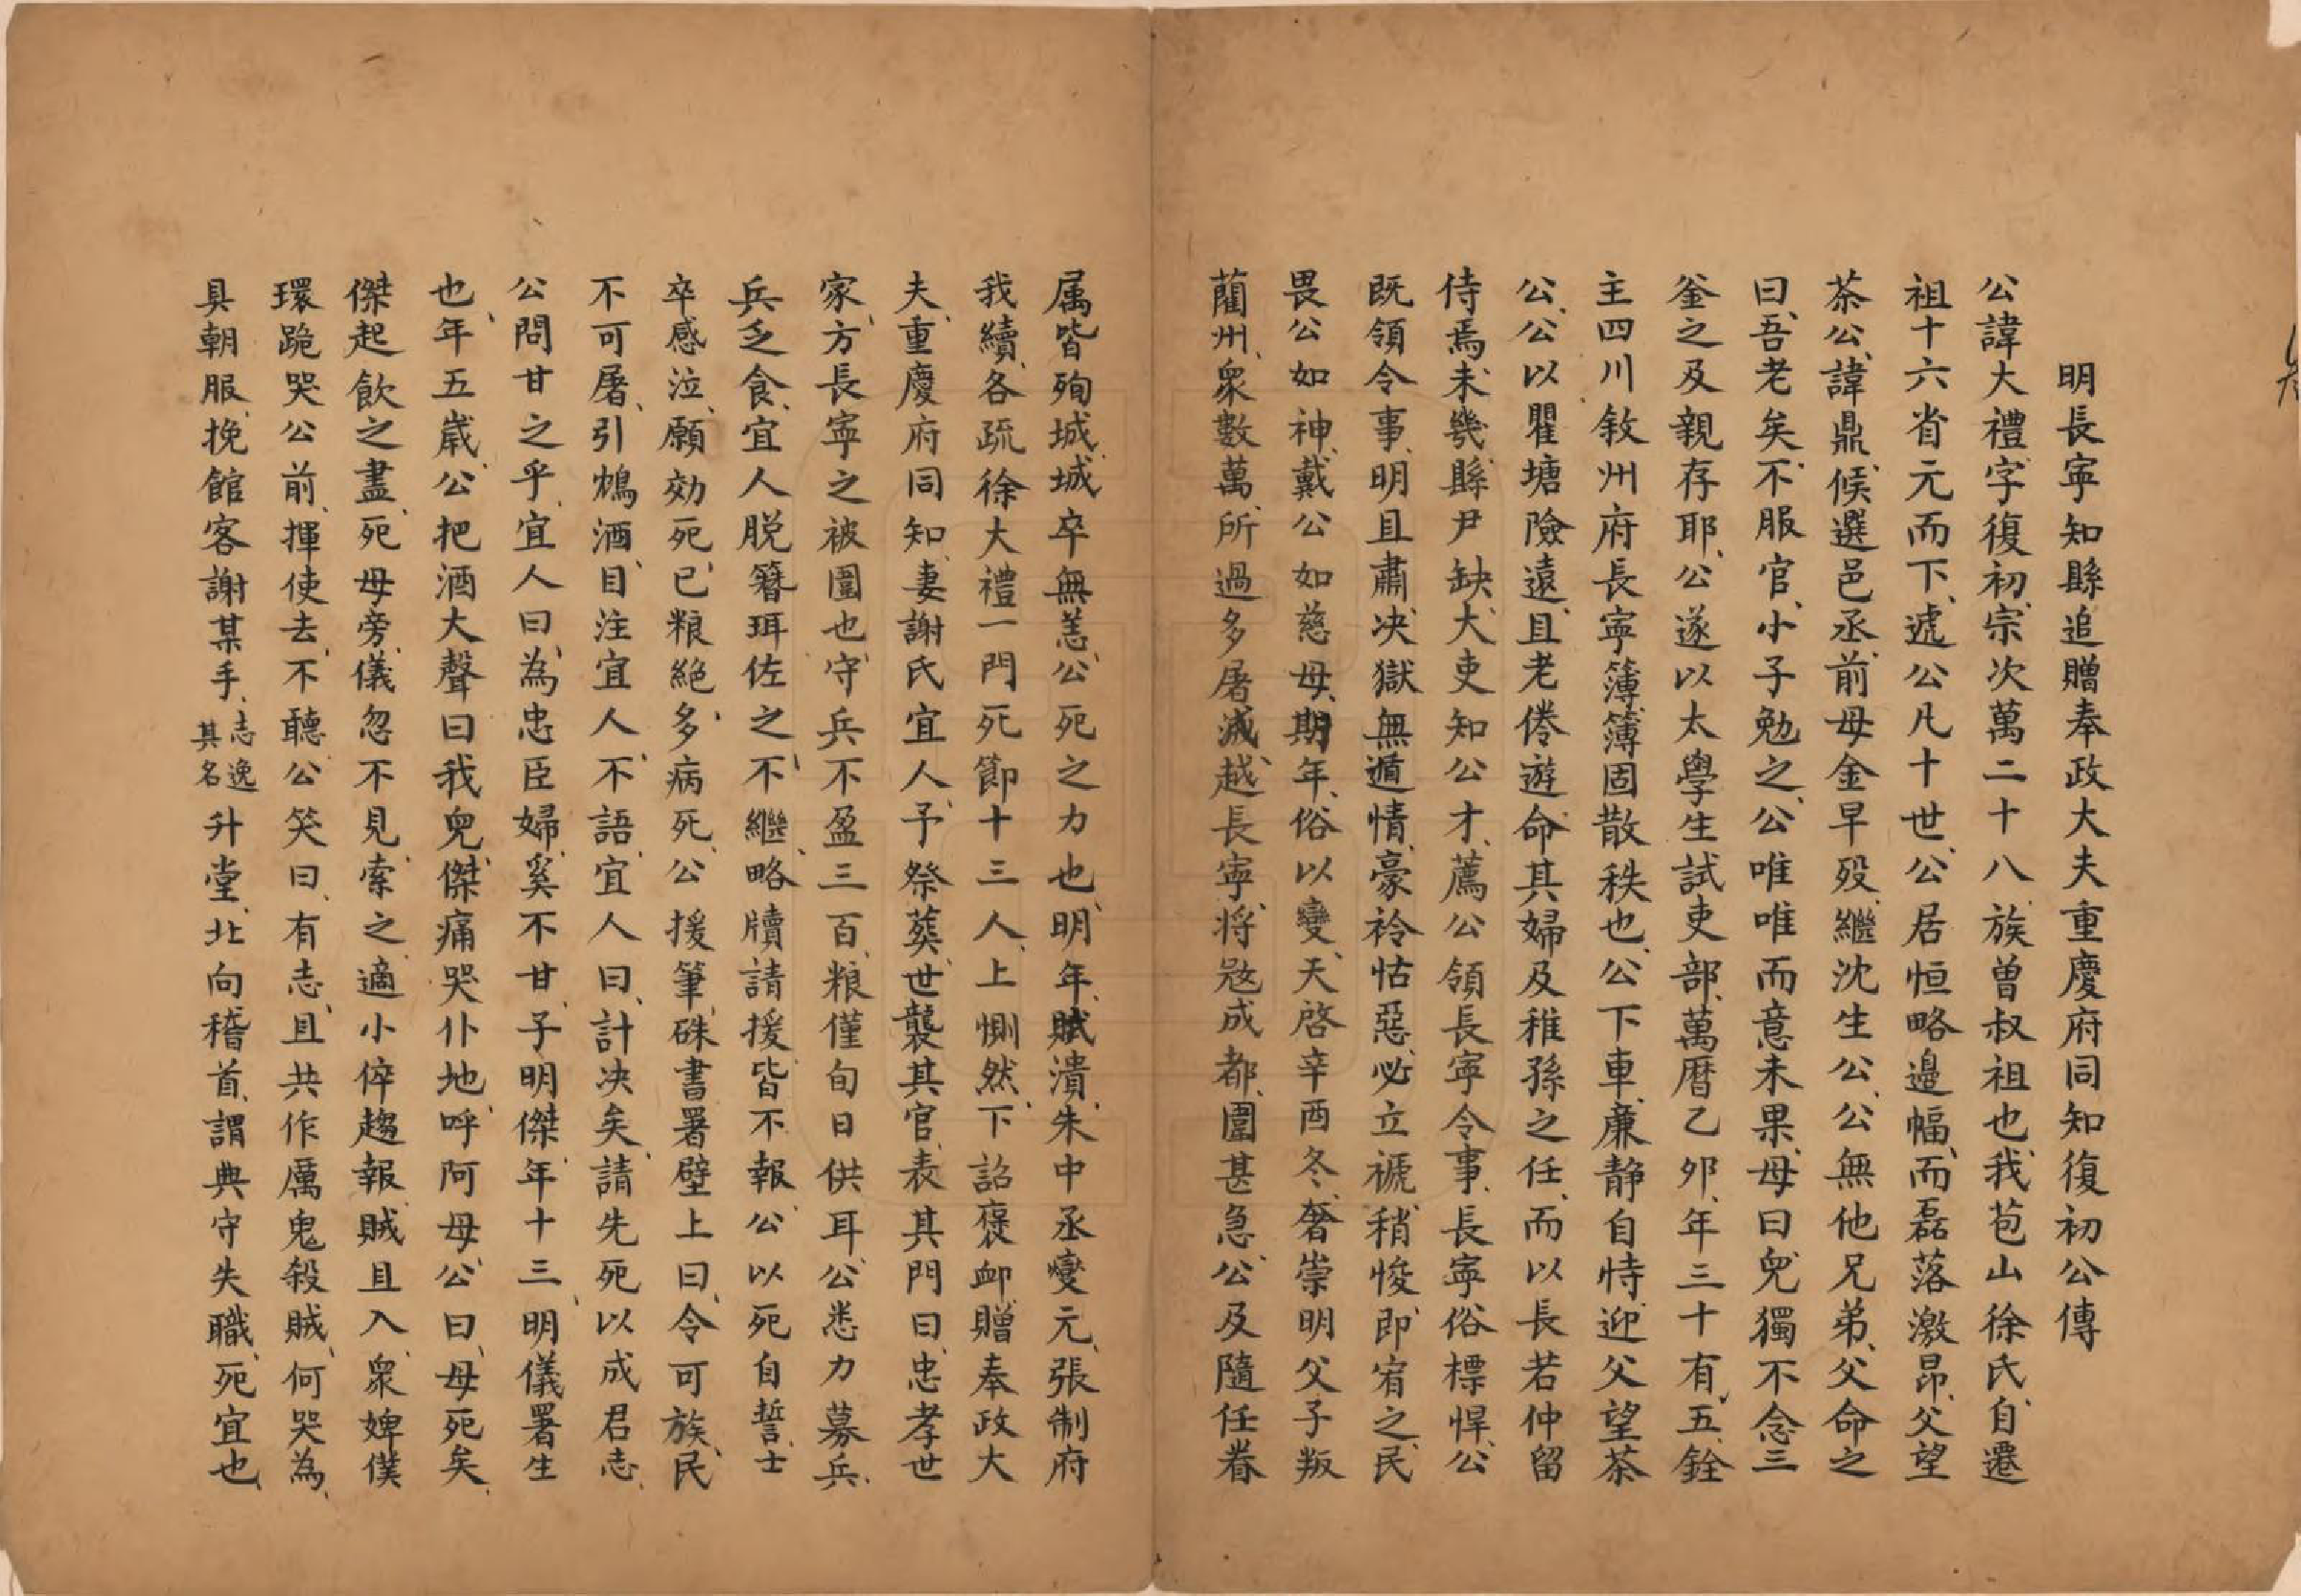 明長寧知縣追贈奉政大夫重慶府同知復初公傳
公諱大禮字復初宗次萬二十八族曾叔祖也我苞山徐氏自遷
祖十六省元而下逮公凡十世公居恒略邉幅而磊落激昂父望
茶公諱鼎候選邑丞前母金早歿繼沈生公公無他兄弟父命之
曰吾老矣不服官小子勉之公唯唯而意未果母曰兒獨不念三
釜之及親存耶公遂以太學生試吏部萬曆乙夘年三十有五銓
主四川敘州府長寧簿簿固散秩也公下車廉静自恃迎父望茶
公公以瞿塘險遠且老倦遊命其婦及稚孫之任而以長若仲留
侍焉未幾縣尹缺大吏知公才薦公領長寧令事長寧俗標悍公
既領令事明且肅决獄無遁情豪衿怙惡必立褫稍悛即宥之民
畏公如神戴公如慈母期年俗以變天啓辛酉冬奢崇明父子叛
藺州衆數萬所過多屠滅越長寧将寇成都圍甚急公及隨任眷
属皆殉城城卒無恙公死之力也明年賊潰朱中丞燮元張制府
我續各疏徐大禮一門死節十三人上惻然下詔褒卹贈奉政大
夫重慶府同知妻謝氏宜人予祭葬世襲其官表其門曰忠孝世
家方長寧之被圍也守兵不盈三百粮僅旬日供耳公悉力募兵
兵乏食宜人脱簪珥佐之不繼略牘請援皆不報公以死自誓士
卒感泣願効死已粮絶多病死公援筆硃書署壁上曰令可族民
不可屠引鴆酒目注宜人不語宜人曰計决矣請先死以成君志
公問甘之乎宜人曰為忠臣婦奚不甘子明傑年十三明儀署生
也年五歲公把酒大聲曰我兒傑痛哭仆地呼阿母公曰母死矣
傑起飲之盡死母旁儀忽不見索之適小倅趨報賊且入衆婢僕
環跪哭公前揮使去不聽公笑曰有志且共作厲鬼殺賊何哭為
具朝服挽館客謝某手志逸其名升堂北向稽首謂典守失職死宜也